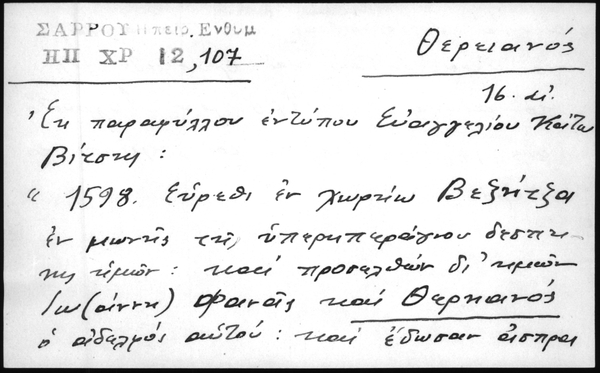 ΣΑΡΡΟΥ Ηπειρ. Ενθυμ
ΗΠ ΧΡ 12, 107
Θερειανός
16. αἰ.
Ἐκ παραφύλλου ἐντύπου Εὐαγγελίου Κάτω
Βίτσης :
" 1598. Εὑρέθι ἐν χωρίω Βεζήτζα
ἐν μωνῆς τῆς ὑπερηπεράγιου δεσπη-
νης ἡμῶν : καί προσελθών δι' ἡμῶν
Ἰω(άννη) Φανᾶς καί Θερηανός
ὁ ἀδελφός αὐτού : καί ἔδωσαν ἄσπρα